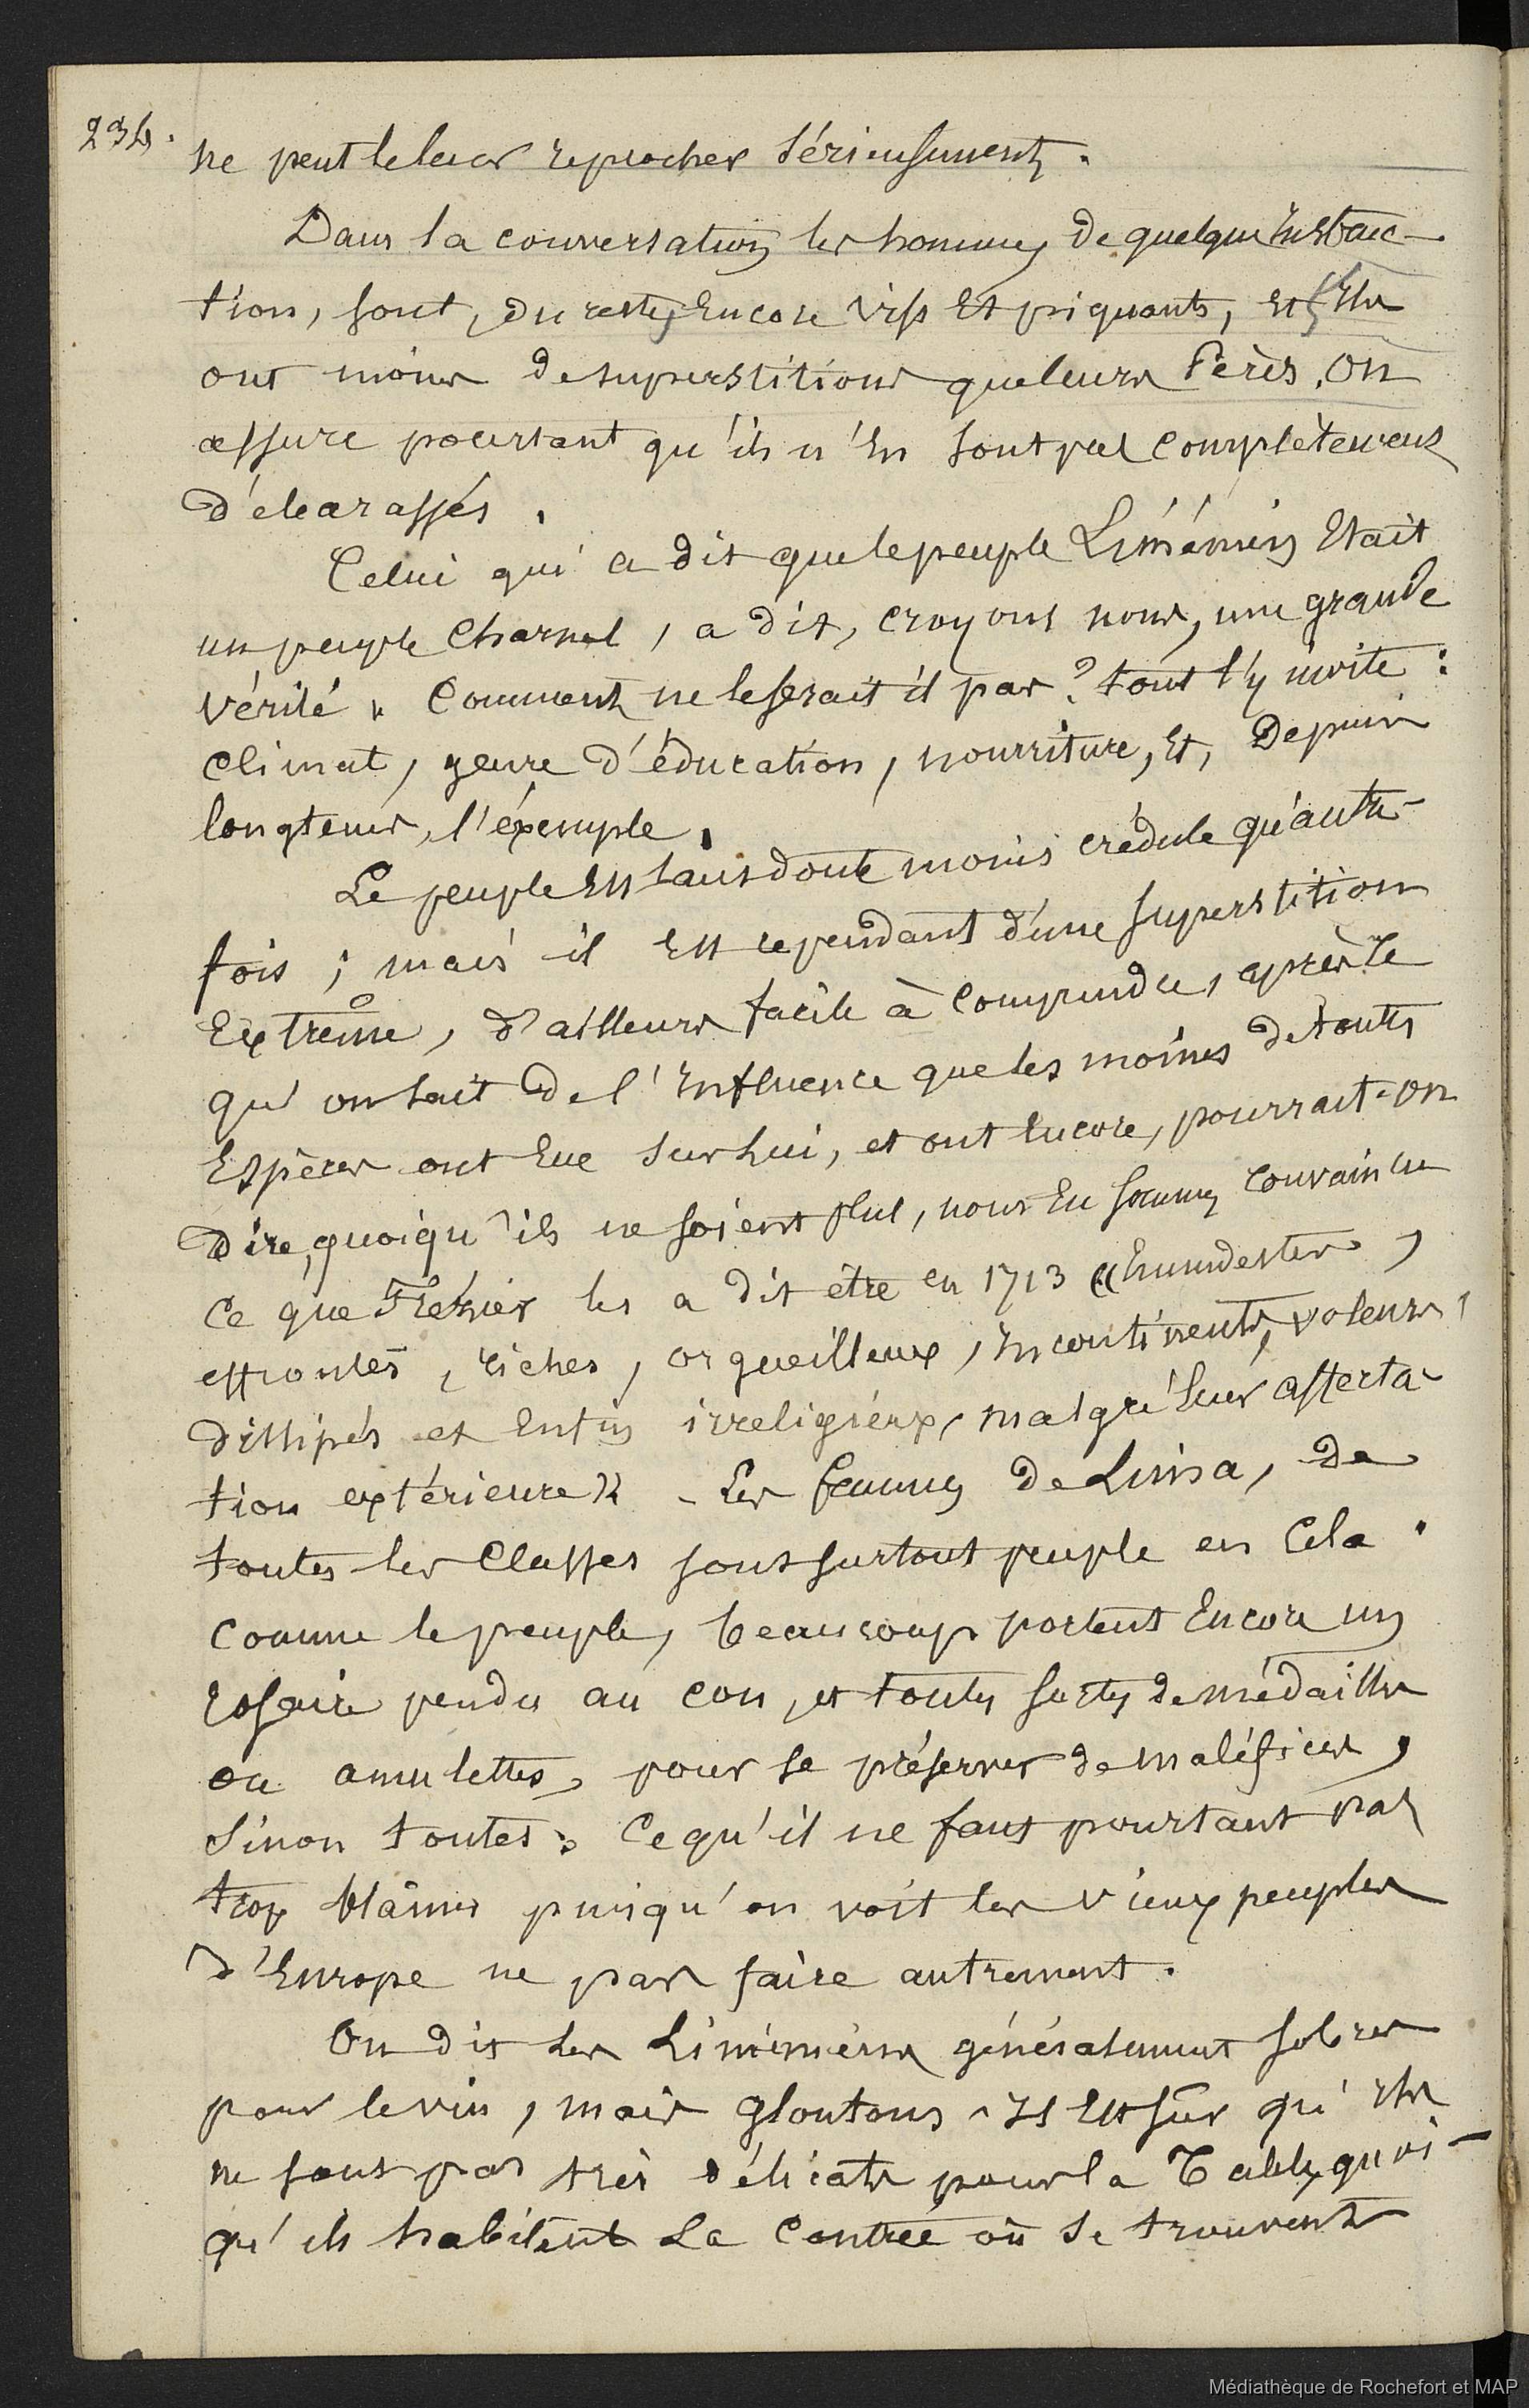 234.
ne peut le leur reprocher sérieusement.
Dans la conversation les hommes de quelque instruc-
tion, sont, du reste, encore vifs et piquants, et ils
ont moins de superstitions que leurs Pères. On
assure pourtant qu'ils n'en sont pas complètement
débarassés.
Celui qui a dit que le peuple Liménien était
un peuple charnel, a dit, croyons nous, une grande
vérité. Comment ne le serait il pas? tout l'y invite:
climat, genre d'éducation, nourriture, et, depuis
longtems, l'éxemple.
Le peuple est sans doute moins crédule qu'autre-
fois; mais il est cependant d'une superstition
extrême, d'ailleurs facile à comprendre, après ce
qu'on sait de l'influence que les moines de toutes
espèces ont eue sur lui, et ont encore, pourrait-on
dire, quoiqu'ils ne soient plus, nous en sommes convaincu
ce que Frézier les a dit être en 1713 «immodestes,
effrontés, riches, orgueilleux, incontinents, voleurs,
dissipés et enfin irreligieux, malgré leur affecta-
tion extérieure» - Les femmes de Lima, de
toutes les classes sont surtout peuple en cela.
Comme le peuple, beaucoup portent encore un
rosaire pendu au cou, et toutes sortes de médailles
ou amulettes, pour se préserver de maléfices,
sinon toutes; ce qu'il ne faut pourtant pas
trop blâmer puisqu'on voit les vieux peuples
d'Europe ne pas faire autrement.
On dit les Liméniens généralement sobres
pour le vin, mais gloutons. Il est sûr qu'ils
ne sont pas très délicats pour la Table, quoi-
qu'ils habitent la contrée où se trouvent
Médiathèque de Rochefort et MAP